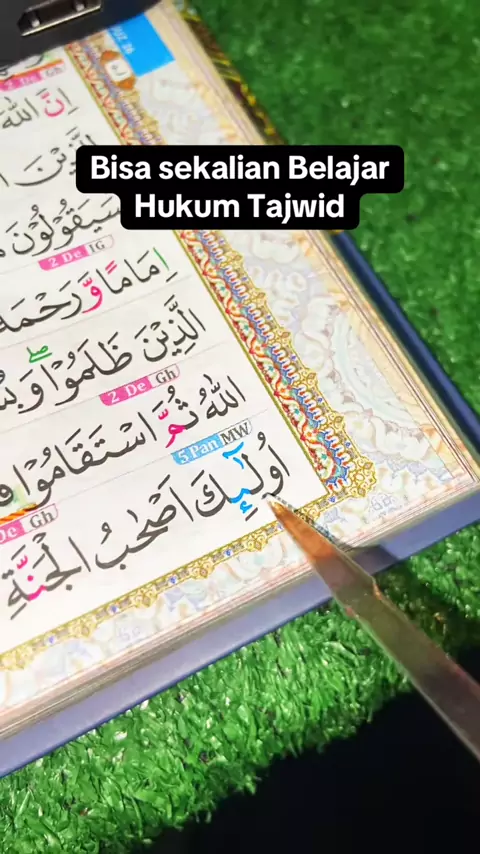 JUZ 26
2 De Gh
اِنَّ اللّٰهَ
Bisa sekalian Belajar
Hukum Tajwid
سَيَقُوْلُوْنَ
2 De IG
اِمَامًا وَّرَحْمَةً
صلے
الَّذِيْنَ ظَلَمُوْا
2 De Gh
اللّٰهُ ثُمَّ اسْتَقَامُوْا
5 Pan MW
De Gh
اُولٰۤىِٕكَ اَصْحٰبُ الْجَنَّةِ